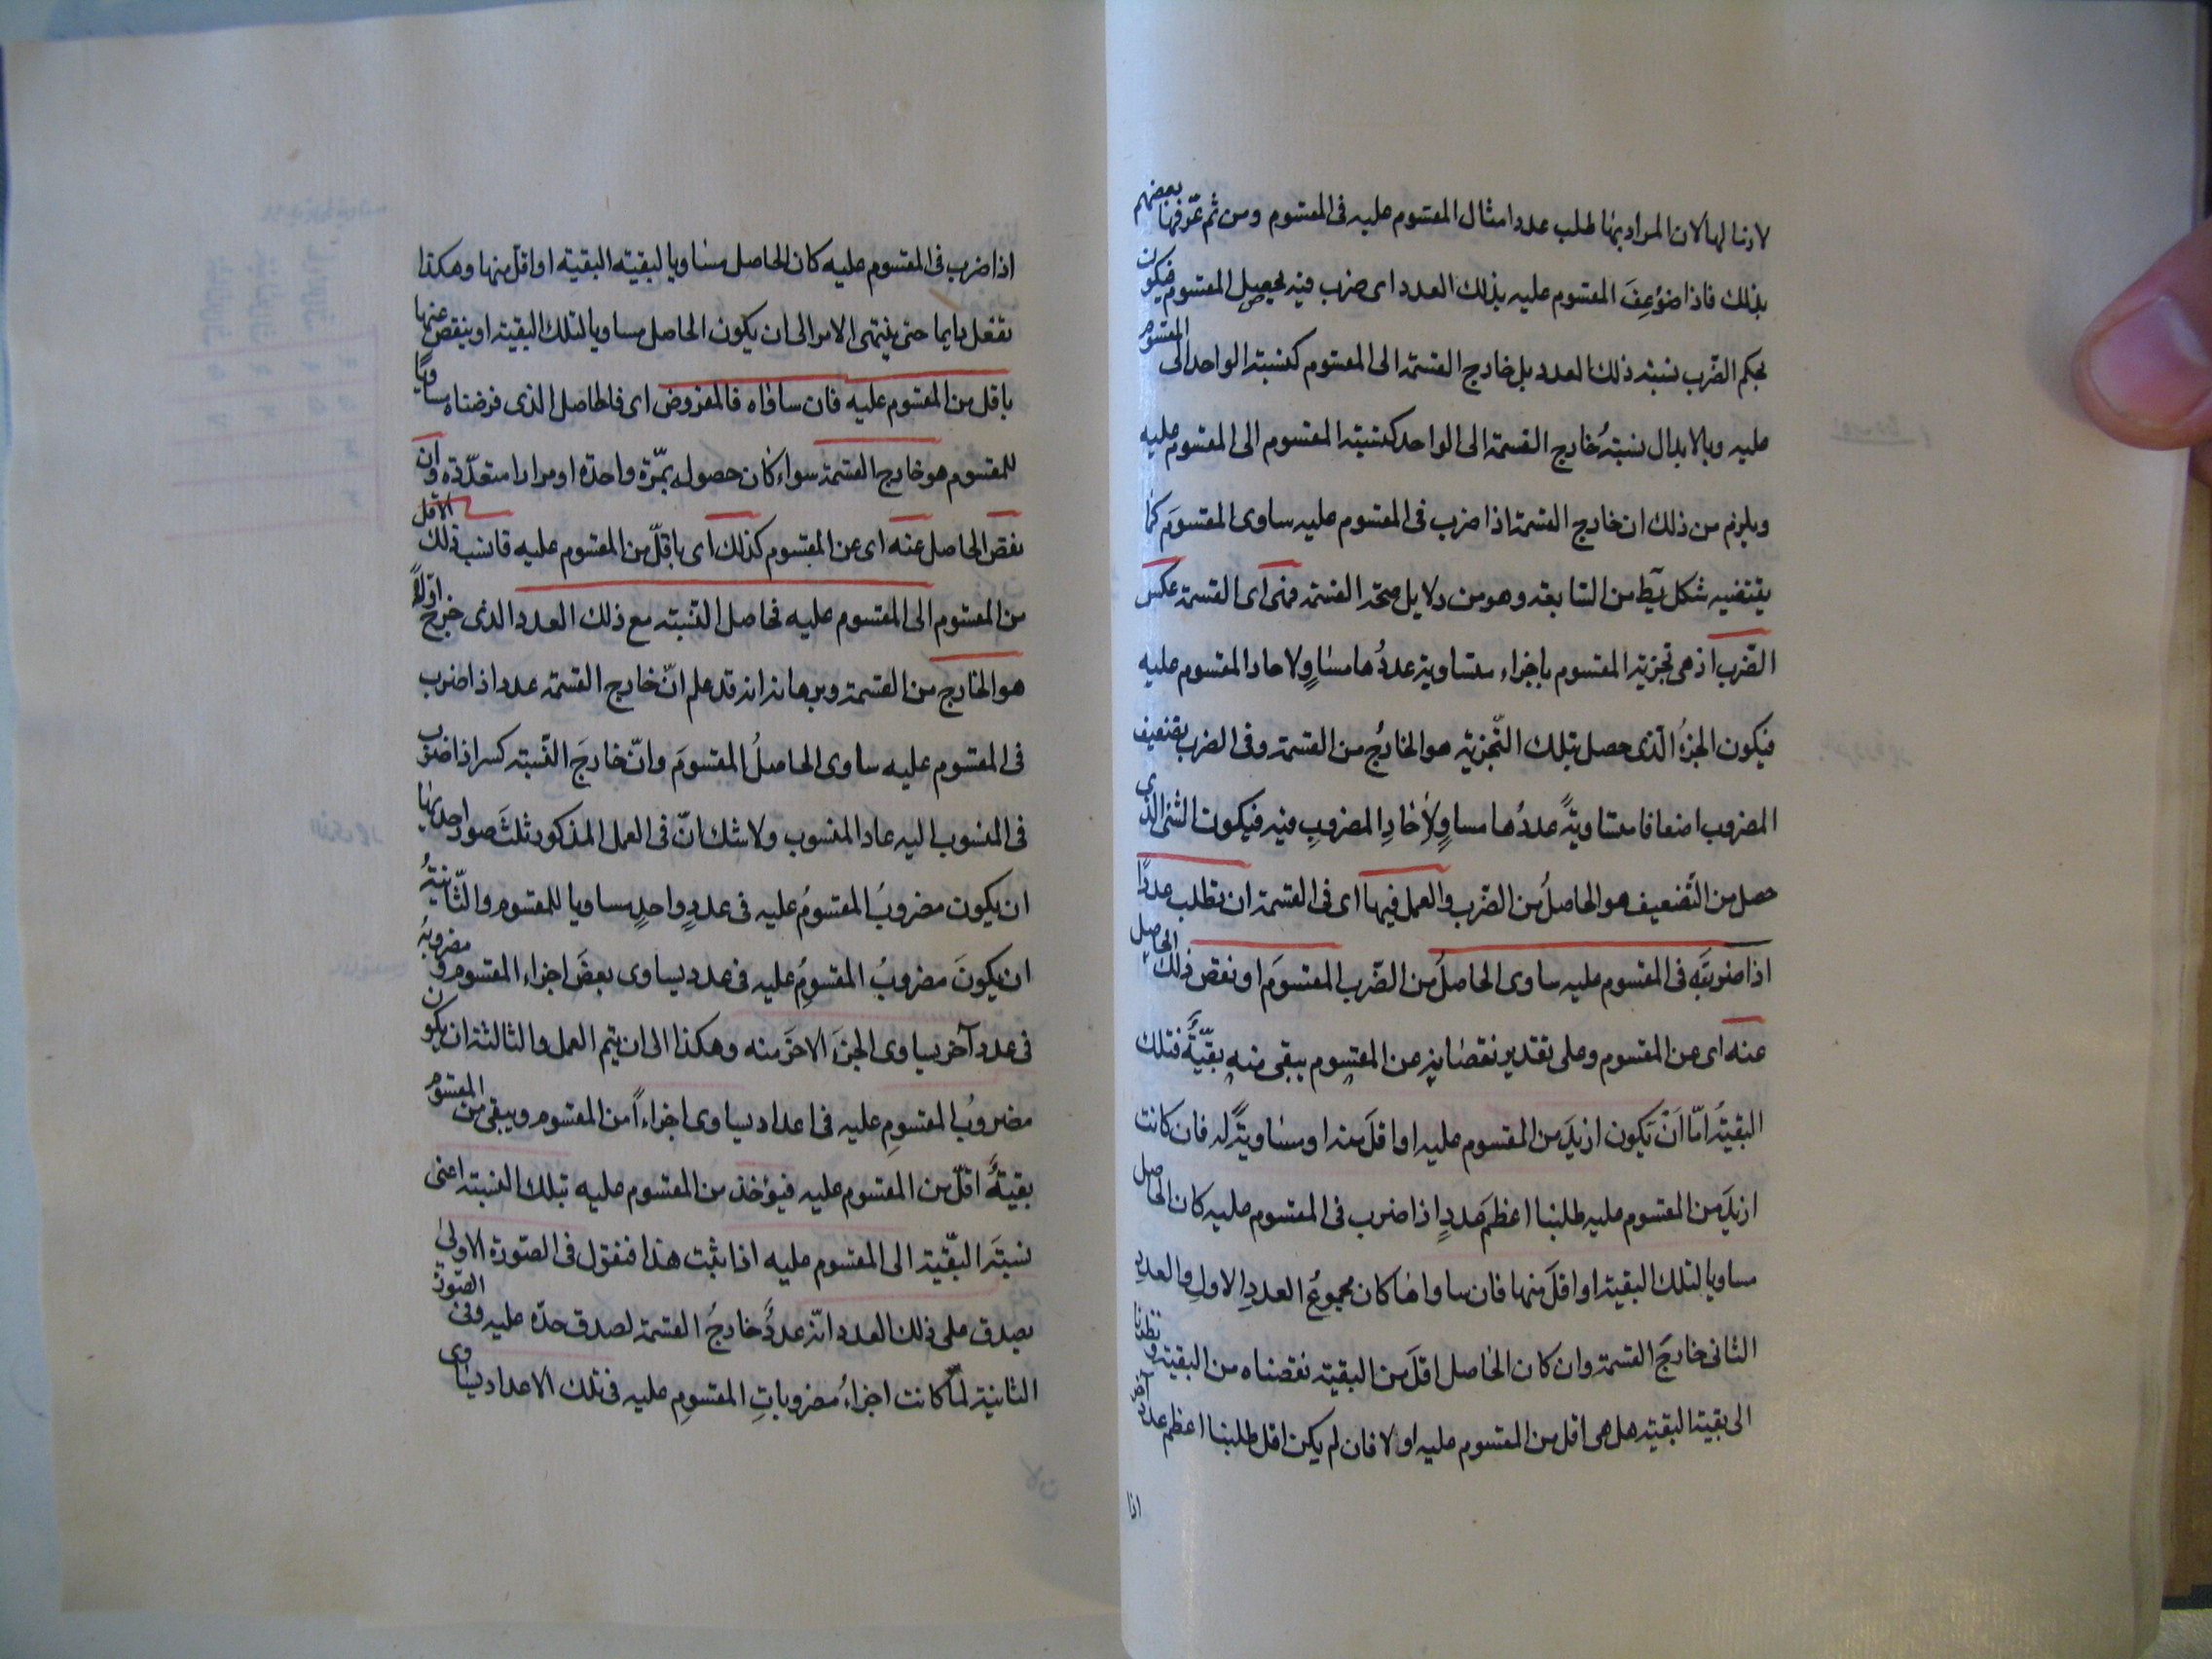 لازما لها لان المراد بها طلب عدد امثال المقسوم عليه فى المقسوم ومن ثم عرّفها بعضهم
بذلك فاذا ضوعِفَ المقسوم عليه بذلك العدد اى ضرب فيه يحصل المقسوم فيكون
بحكم الضّرب نسبة ذلك العدد بل خارج القسمة الى المقسوم كنسبة الواحد الى المقسوم
عليه وبالابدال نسبةُ خارج القسمة الى الواحد كنسبة المقسوم الى المقسوم عليه
ويلزم من ذلك ان خارج القسمة اذا ضرب فى المقسوم عليه ساوى المقسومَ كما
يقتضيه شكل يَط من السابعة وهو من دلايل صحّة القسمة فهى اى القسمة عكس
الضّرب اذ هى تجزية المقسوم باجزاء متساوية عددُها مساوٍ لاحاد المقسوم عليه
فيكون الجزءُ الّذى حصل بتلك التّجزية هو الخارُج من القسمة وفى الضرب تضعيف
المضروب اضعافا متساويةً عددُها مساوٍ لأحادِ المضروبِ فيه فيكون الشئ الذى
حصل من التّضعيف هو الحاصلُ من الضّرب والعمل فيها اى فى القسمة ان تطلب عددًا
اذا ضربتَه فى المقسوم عليه ساوى الحاصلُ من الضّرب المقسومَ او نقص ذلك الحاصل
عنه اى عن المقسوم وعلى تقدير نقصانه عن المقسوم يبقى منه بقيّةٌ فتلك
البقيةُ امّا اَنْ تكون ازيدَ من المقسوم عليه او اقلَ منه او مساويةً له فان كانت
ازيدَ من المقسوم عليه طلبنا اعظمَ عددٍ اذا ضرب فى المقسوم عليه كان الحاصل
مساويا لتلك البقية او اقلَ منها فان ساواها كان مجموعُ العددِ الاولِ والعددِ
الثانى خارجَ القسمة وان كان الحاصل اقلَ من البقية نقصناه من البقية ونظرنا
الى بقية البقية هل هى اقل من المقسوم عليه اولا فان لم يكن اقل طلبنا اعظم عدد آخر
اذا
اذا ضرب فى المقسوم عليه كان الحاصل مساويا لبقية البقية او اقل منها وهكذا
نفعل دايما حتى ينتهى الامر الى ان يكون الحاصل مساويا لتلك البقية او ينقص عنها
باقل من المقسوم عليه فان ساواه فالمفروض اى فالحاصل الذى فرضناه مساويًا
للمقسوم هو خارج القسمة سواء كان حصوله بمّرة واحدة او مرارا متعدّدة وان
نقص الحاصل عنه اى عن المقسوم كذلك اى باقلّ من المقسوم عليه فانسب ذلك الاقل
من المقسوم الى المقسوم عليه فحاصل النّسبة مع ذلك العدد الذى خرج اوّلاً
هو الخارج من القسمة وبرهانه انه قد علم انّ خارج القسمة عدد اذا ضرب
فى المقسوم عليه ساوى الحاصلُ المقسومَ وانّ خارجَ النّسبة كسر اذا ضرب
فى المنسوب اليه عاد المنسوب ولا شك انّ فى العمل المذكور ثلثَ صور احديها
ان يكون مضروبُ المقسومُ عليه فى عددٍ واحدٍ مساويا للمقسوم والثّانيةُ
ان يكونَ مضروبُ المقسومِ عليه فى عدد يساوى بعضَ اجزاء المقسوم ومضروبهُ
فى عدد آخر يساوى الجزَء الاخرَ منه وهكذا الى ان يتم العمل والثالثة ان يكون
مضروبُ المقسومِ عليه فى اعداد يساوى اجزاءاً من المقسوم ويبقى من المقسوم
بقيةٌ اقلّ من المقسوم عليه فيؤخذ من المقسوم عليه بتلك النسبة اعنى
نسبتَه البقّية الى المقسوم عليه اذا ثبت هذا فنقول فى الصّورة الاولىٰ
يصدق على ذلك العدد انّه عددٌ خارجُ القسمة لصدق حدّه عليه وفى الصّورة
الثانية لمّا كانت اجزاءُ مضروباتِ المقسومِ عليه فى تلك الاعداد يساوى